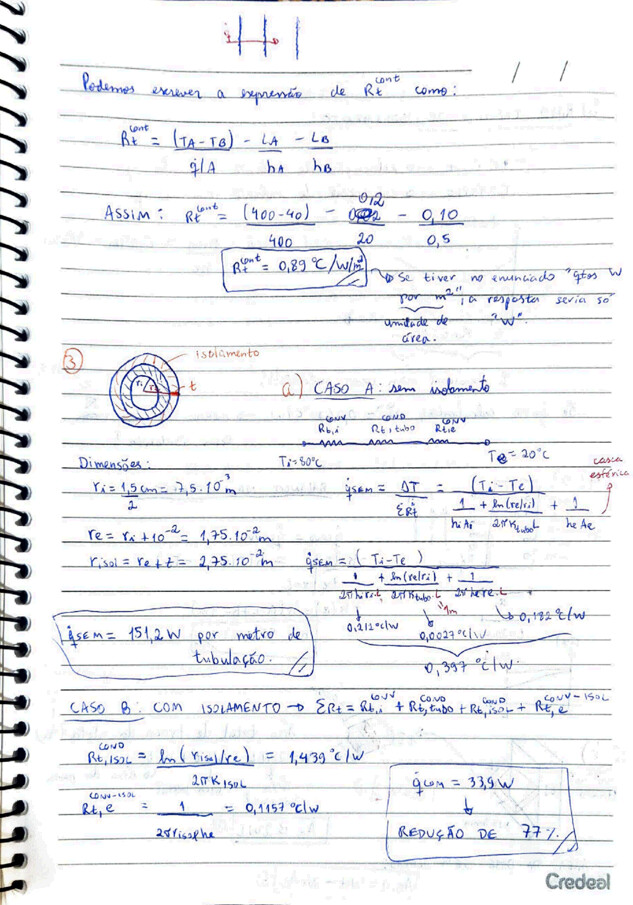 / /
Podemos escrever a expressão de Rt^cont como:
Rt^cont = (TA - TB)/(q̇/A) - LA/hA - LB/hB
ASSIM: Rt^cont = (400-40)/400 - 0,12/20 - 0,10/0,5
Rt^cont = 0,89 °C/W/m²
Se tiver no enunciado "qtos W
por m²", a resposta seria só
unidade de "W".
área.
3
isolamento
ri
t
a) CASO A: sem isolamento
CONV COND CONV
Rt,i Rt,tubo Rt,e
Dimensões: Ti=80°C Te = 20°C
casca
esférica
ri = 1,5cm/2 = 7,5.10^-3 m
q̇SEM = ΔT/ΣRt = (Ti-Te)/(1/hiAi + ln(re/ri)/2πKtuboL + 1/heAe)
re = ri + 10^-2 = 1,75.10^-2 m
r,isol = re + t = 2,75.10^-2 m
q̇SEM = (Ti-Te)/(1/2πhiri.L + ln(re/ri)/2πKtubo.L + 1/2πhere.L)
1m
0,212°C/W 0,0027°C/W 0,182°C/W
0,397 °C/W.
q̇SEM = 151,2W por metro de
tubulação.
CASO B: COM ISOLAMENTO → ΣRt = Rt,i^CONV + Rt,TUBO^COND + Rt,ISOL^COND + Rt,e^CONV-ISOL
Rt,ISOL^COND = ln(risol/re)/2πKISOL = 1,439°C/W
Rt,e^CONV-ISOL = 1/2πrisolhe = 0,1157°C/W
q̇COM = 33,9W
REDUÇÃO DE 77%.
Credeal